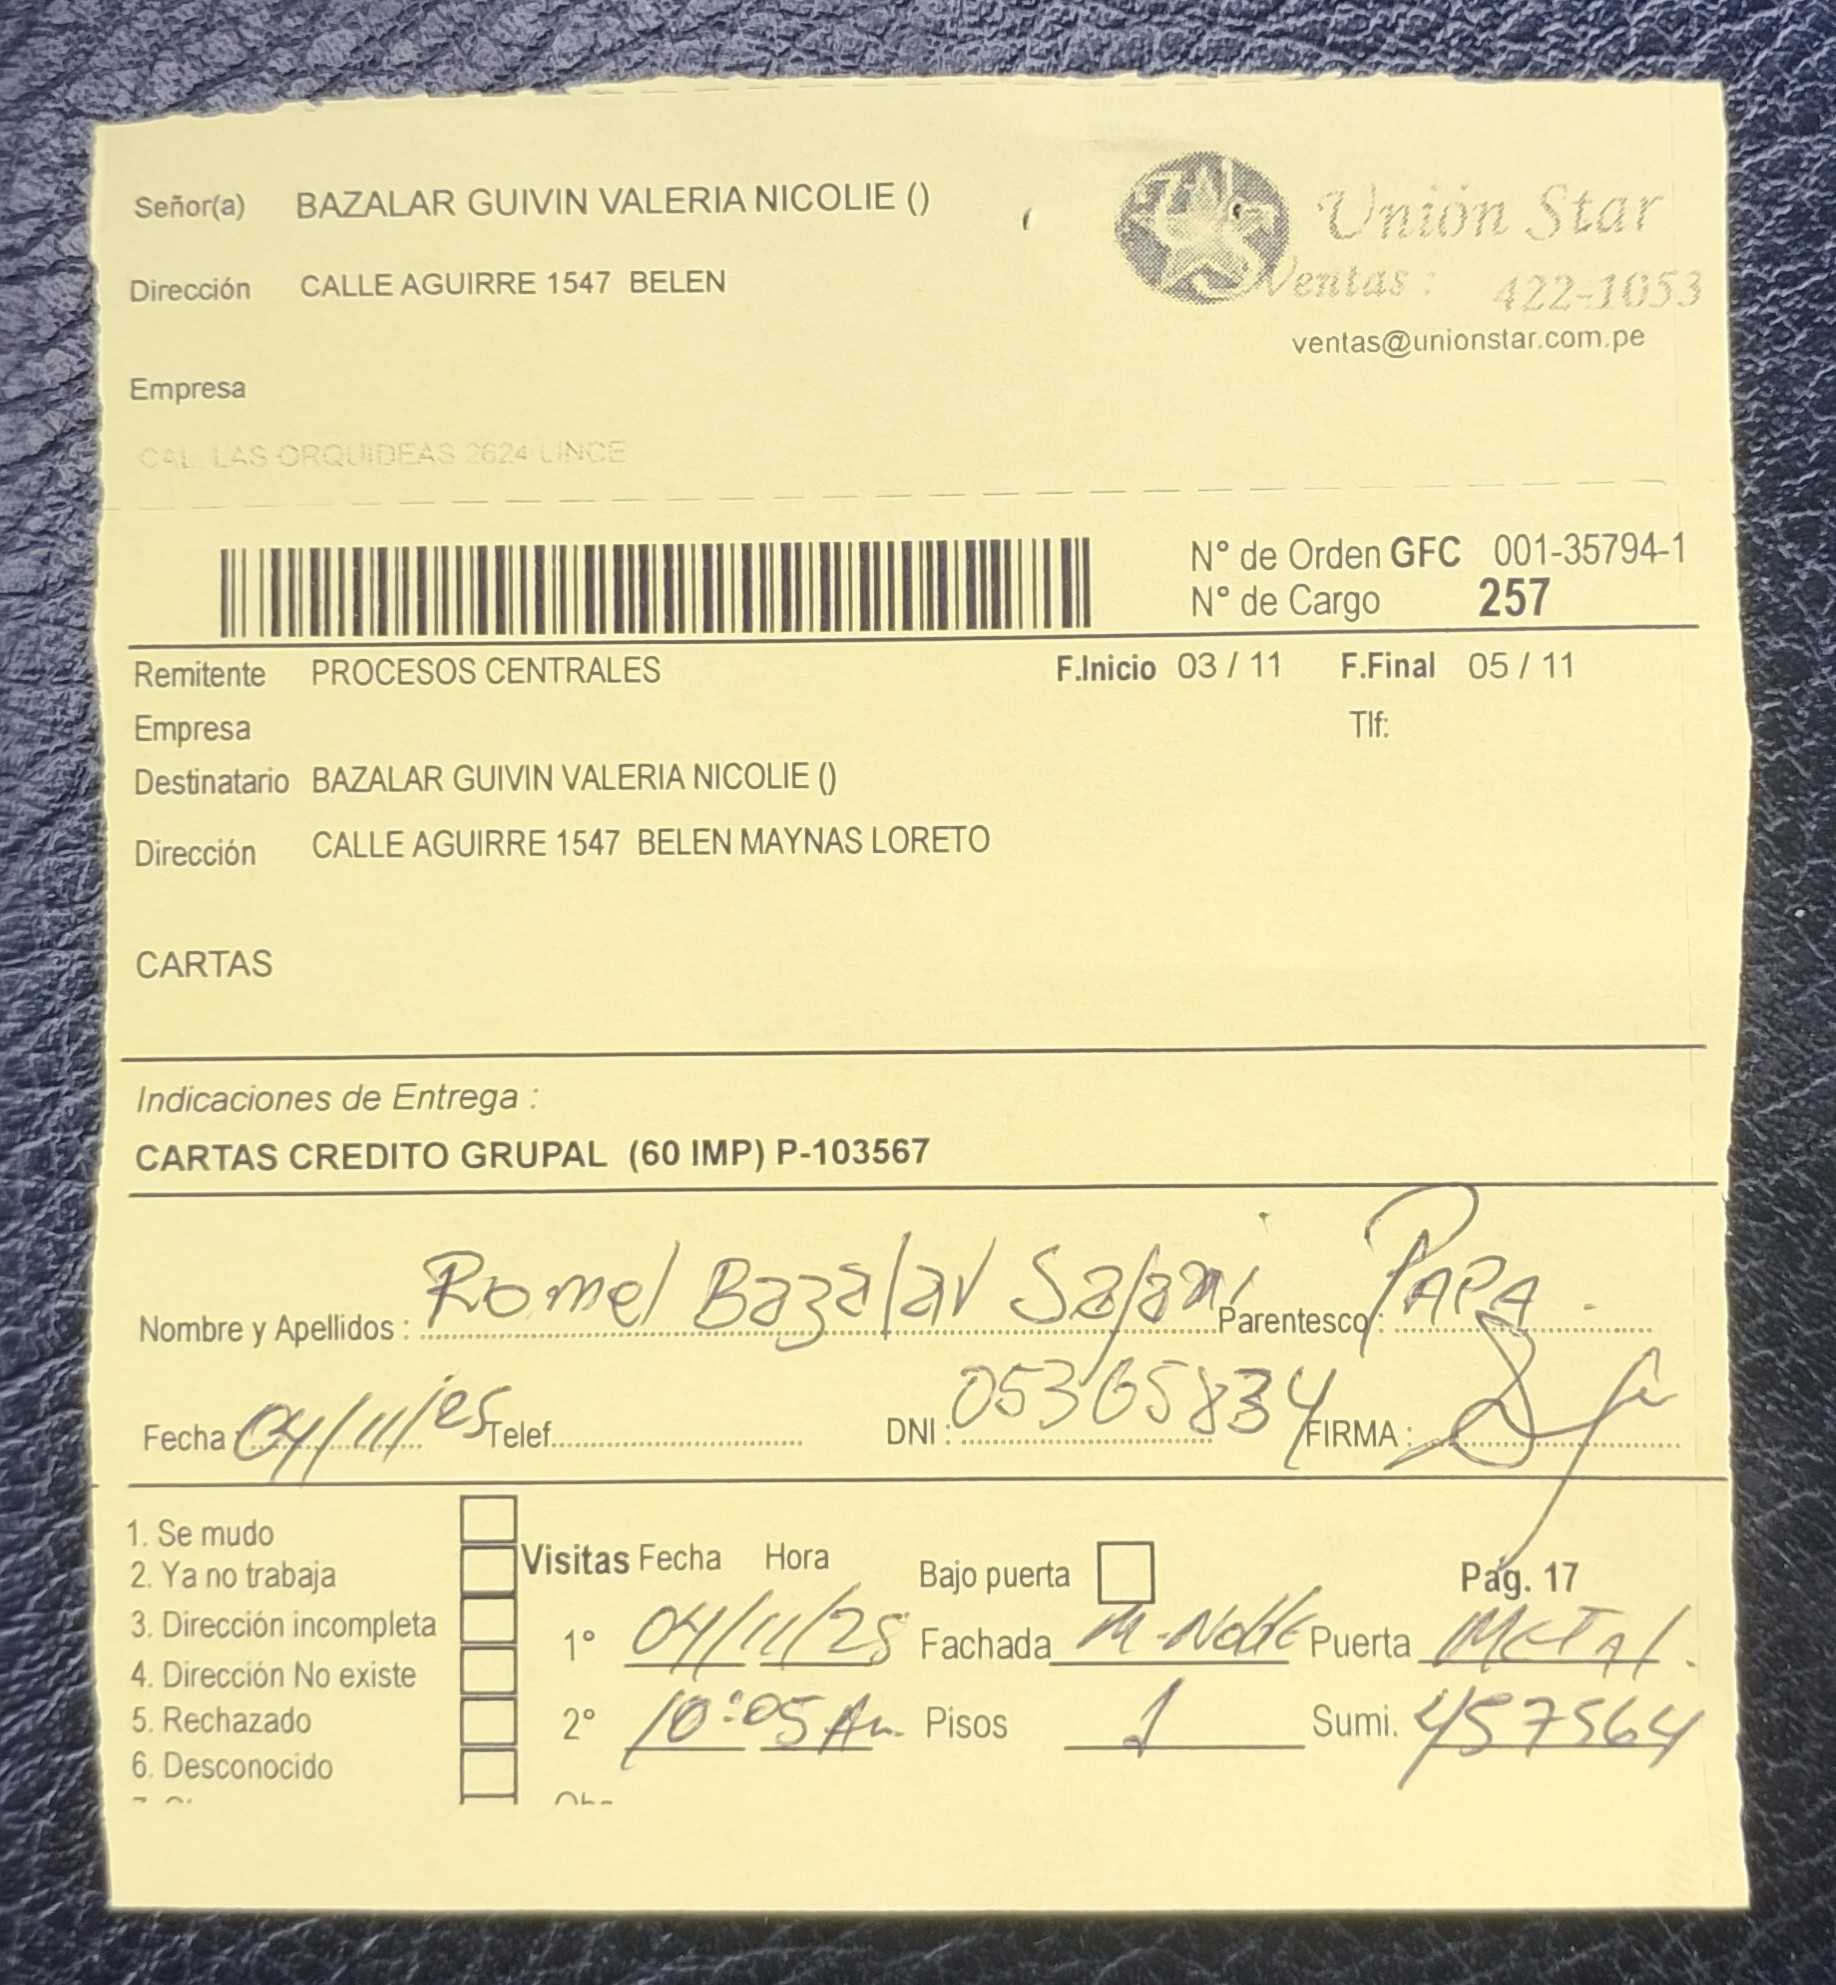 Señor(a) BAZALAR GUIVIN VALERIA NICOLIE ()
Unión Star
Dirección CALLE AGUIRRE 1547 BELEN
Ventas : 422-1053
ventas@unionstar.com.pe
Empresa
CAL. LAS ORQUIDEAS 2624 LINCE
N° de Orden GFC 001-35794-1
N° de Cargo 257
Remitente PROCESOS CENTRALES F.Inicio 03 / 11 F.Final 05 / 11
Empresa Tlf:
Destinatario BAZALAR GUIVIN VALERIA NICOLIE ()
Dirección CALLE AGUIRRE 1547 BELEN MAYNAS LORETO
CARTAS
Indicaciones de Entrega :
CARTAS CREDITO GRUPAL (60 IMP) P-103567
Nombre y Apellidos : Romel Bazalar Parentesco : PAPA.
Fecha : 04/11/25 Telef. DNI : 05365834 FIRMA :
1. Se mudo
2. Ya no trabaja Visitas Fecha Hora Bajo puerta Pág. 17
3. Dirección incompleta 1° 04/11/25 Fachada M-Noble Puerta METAL.
4. Dirección No existe
5. Rechazado 2° 10:05 Am. Pisos 1 Sumi. 457564
6. Desconocido